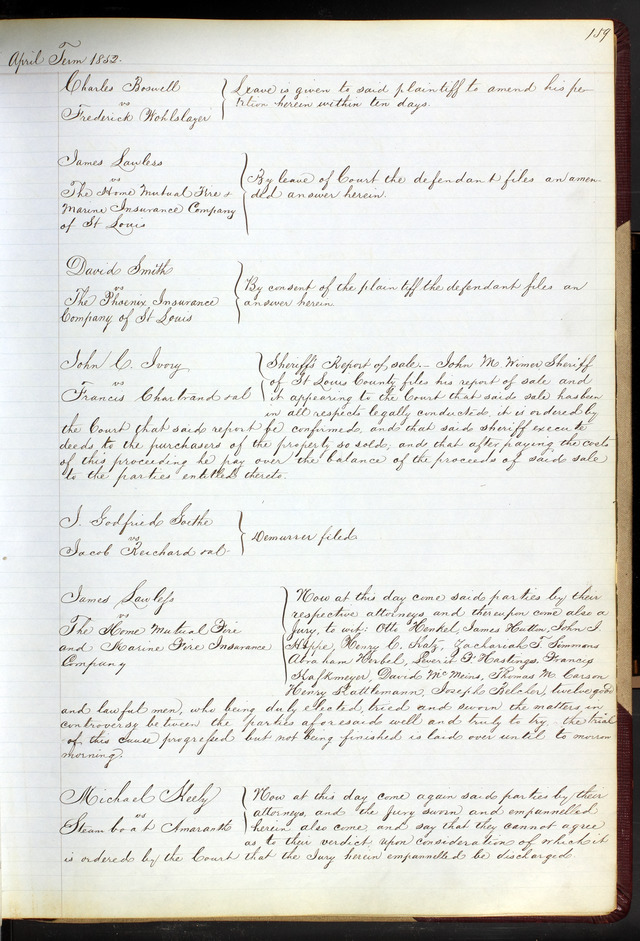 159
April Term 1852.
Charles Boswell
vs
Frederick Wohlslazer
Leave is given to said plaintiff to amend his pe-
tition herein within ten days.
James Lawless
vs
The Home Mutual Fire &
Marine Insurance Company
of St Louis
By leave of Court the defendant files an amen-
ded answer herein.
David Smith
vs
The Phoenix Insurance
Company of St Louis
By consent of the plaintiff the defendant files an
answer herein
John C. Ivory
vs
Francis Chartrand et al
Sheriff's Report of sale.- John M. Wimer Sheriff
of St Louis County files his report of sale and
it appearing to the Court that said sale has been
in all respects legally conducted, it is ordered by
the Court that said report be confirmed, and that said sheriff execute
deeds to the purchasers of the property so sold, and that after paying the costs
of this proceeding he pay over the balance of the proceeds of said sale
to the parties entitled thereto.
J. Godfried Goethe
vs
Jacob Reichard et al.
Demurrer filed
James Lawless
vs
The Home Mutual Fire
and Marine Fire Insurance
Company
Now at this day come said parties by their
respective attorneys, and thereupon come also a
Jury, to wit: Otto Henkel, James Hutton, John I.
Hoppe, Henry C. Katz, Zachariah F. Simmons
Abraham Herbel, Leverit F. Hastings, Francis
Kafkmeyer, David McMeins, Thomas M. Carson
Henry Stattlemann, Joseph Belcher, twelve good
and lawful men, who being duly elected, tried and sworn the matters in
controversy between the parties aforesaid well and truly to try. the trial
of this cause progressed but not being finished is laid over until to morrow
morning.
Michael Keely
vs
Steam boat Amaranth
Now at this day come again said parties by their
attorneys, and the Jury sworn and empannelled
herein also come, and say that they cannot agree
as to their verdict, upon consideration of which it
is ordered by the Court that the Jury herein empannelled be discharged